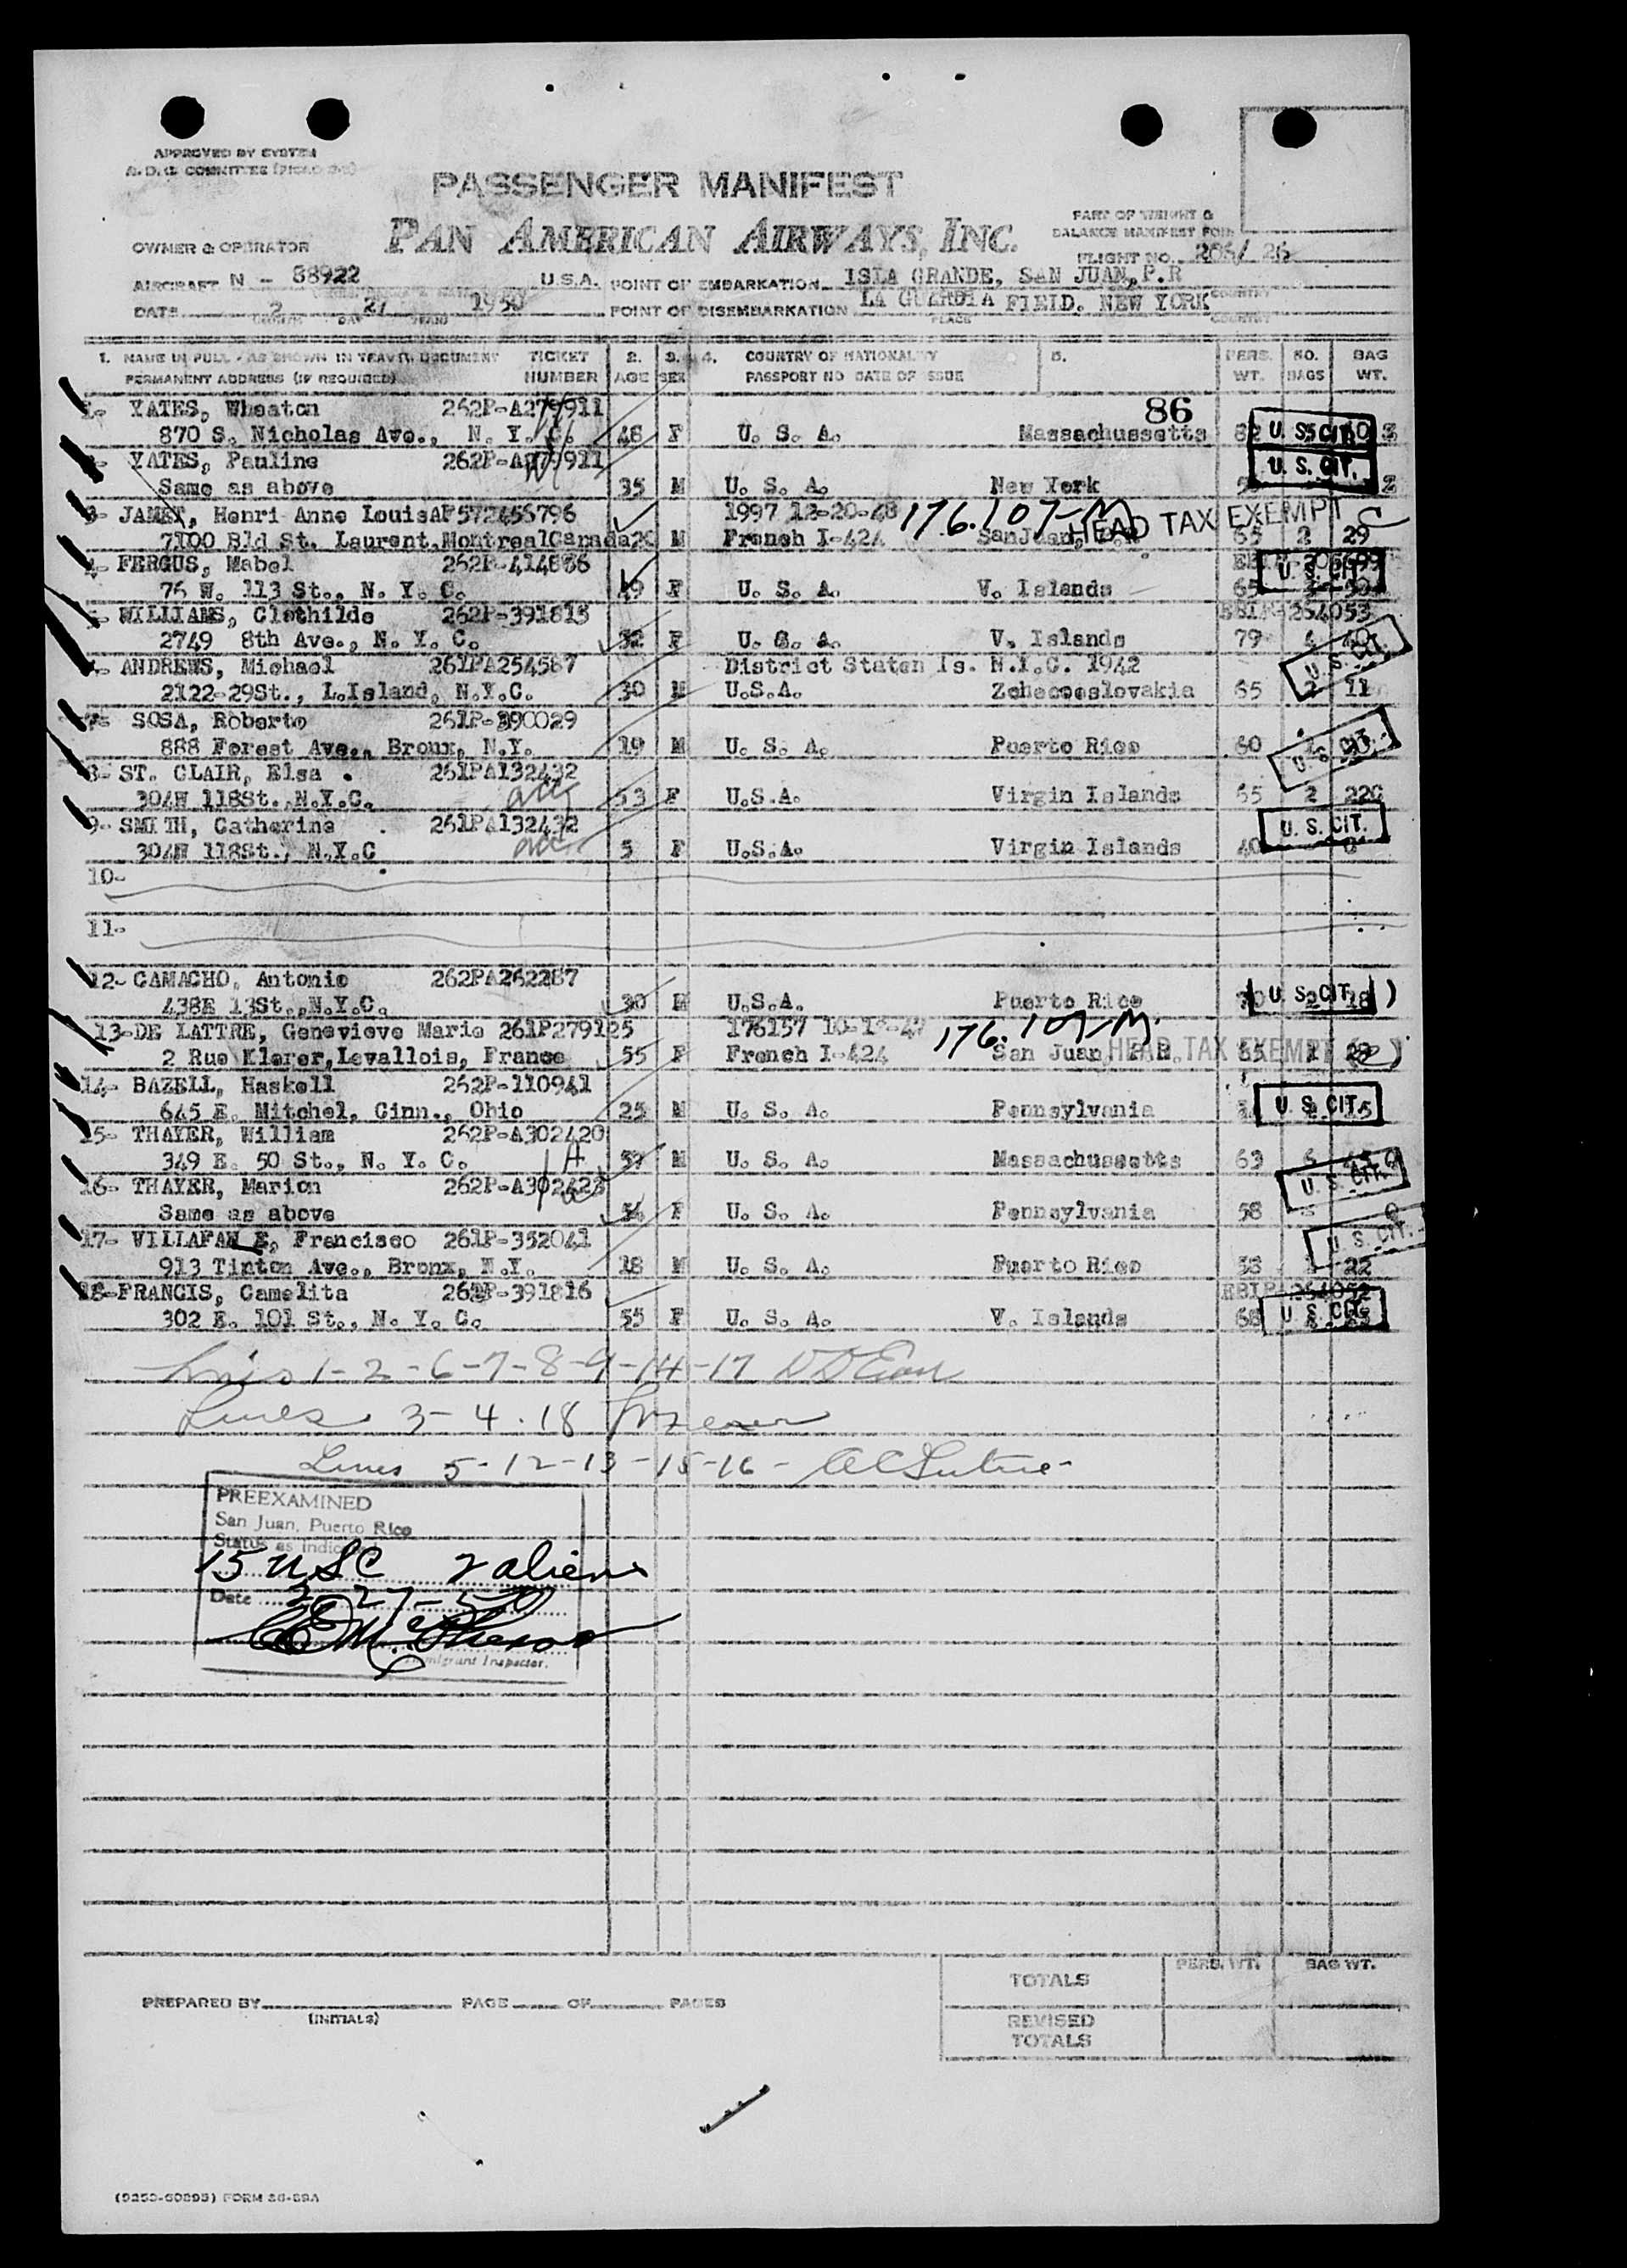 APPROVED BY SYSTEM
PASSENGER MANIFEST
PAN AMERICAN AIRWAYS, INC.
PART OF WEIGHT &
BALANCE MANIFEST FOR:
OWNER & OPERATOR
FLIGHT NO. 206/ 26
AIRCRAFT N - 88922 U.S.A. POINT OF EMBARKATION ISLA GRANDE, SAN JUAN, P.R
DATE 2 27 1950 POINT OF DISEMBARKATION LA GUARDIA FIELD. NEW YORK
MONTH DAY YEAR PLACE COUNTRY
1. NAME IN FULL - AS SHOWN IN TRAVEL DOCUMENT TICKET 2. 3. 4. COUNTRY OF NATIONALITY 5. PERS. NO. BAG
PERMANENT ADDRESS (IF REQUIRED) NUMBER AGE SEX PASSPORT NO DATE OF ISSUE WT. BAGS WT.
86
YATES, Wheaton 262P-A279911
870 S. Nicholas Ave., N. Y. C. 48 F U. S. A. Massachussetts 82 U. S. CIT.
YATES, Pauline 262P-A279911
Same as above 35 M U. S. A. New York U. S. CIT.
3- JAMET, Henri Anne Louis 1997 12-20-48 176.107-M HEAD TAX EXEMPT C
7100 Bld St. Laurent, Montreal Canada M French I-424 San Juan, 65 2 29
FERGUS, Mabel 262P-414886
76 W. 113 St., N. Y. C. 49 F U. S. A. V. Islands 65 U. S. CIT.
WILLIAMS, Clothilde 262P-391815 264053
2749 8th Ave., N. Y. C. 32 F U. S. A. V. Islands 79 4 40
ANDREWS, Michael 261PA254587 District Staten Is. N.Y.C. 1942 U. S. CIT.
2122-29St., L.Island, N.Y.C. 30 M U.S.A. Zchecoeslovakia 65 2 11
7- SOSA, Roberto 261P-390029
888 Forest Ave., Bronx, N.Y. 19 M U. S. A. Puerto Rico 60 U. S. CIT.
8- ST. CLAIR, Elsa 261PA132432
304W 118St. N.Y.C. acc 53 F U.S.A. Virgin Islands 65 2 22
9- SMITH, Catherine 261PA132432 U. S. CIT.
304W 118St., N.Y.C acc 5 F U.S.A. Virgin Islands 40 0
10-
11-
12- CAMACHO, Antonio 262PA262287
438E 13St., N.Y.C. 30 M U.S.A. Puerto Rico 70 U. S. CIT. 18
13-DE LATTRE, Genevieve Marie 261P279125 176157 176.107-M.
2 Rue Klerer, Levallois, France 55 F French I-424 San Juan P R. HEAD TAX EXEMPT
14- BAZELL, Haskell 262P-110941
645 E. Mitchel, Cinn., Ohio 25 M U. S. A. Pennsylvania U. S. CIT.
15- THAYER, William 262P-A302420
349 E. 50 St., N. Y. C. 59 M U. S. A. Massachussetts 63 6
16- THAYER, Marion U. S. CIT.
Same as above F U. S. A. Pennsylvania 58 0
17- VILLAFANE, Francisco 261P-352041 U. S. CIT.
913 Tinton Ave., Bronx, N.Y. 18 M U. S. A. Puerto Rico 22
18-FRANCIS, Camelita 391816 264052
302 E. 101 St., N. Y. C. 55 F U. S. A. V. Islands 68 U. S. CIT.
Lines 1-2-6-7-8-9-14-17
Lines 3-4.18
Lines 5-12-13-15-16-
PREEXAMINED
San Juan, Puerto Rico
Status as indicated
15 USC 2 aliens
Date 2-27-50
Immigrant Inspector.
TOTALS PERS. WT. BAG WT.
PREPARED BY PAGE OF PAGES
(INITIALS)
REVISED
TOTALS